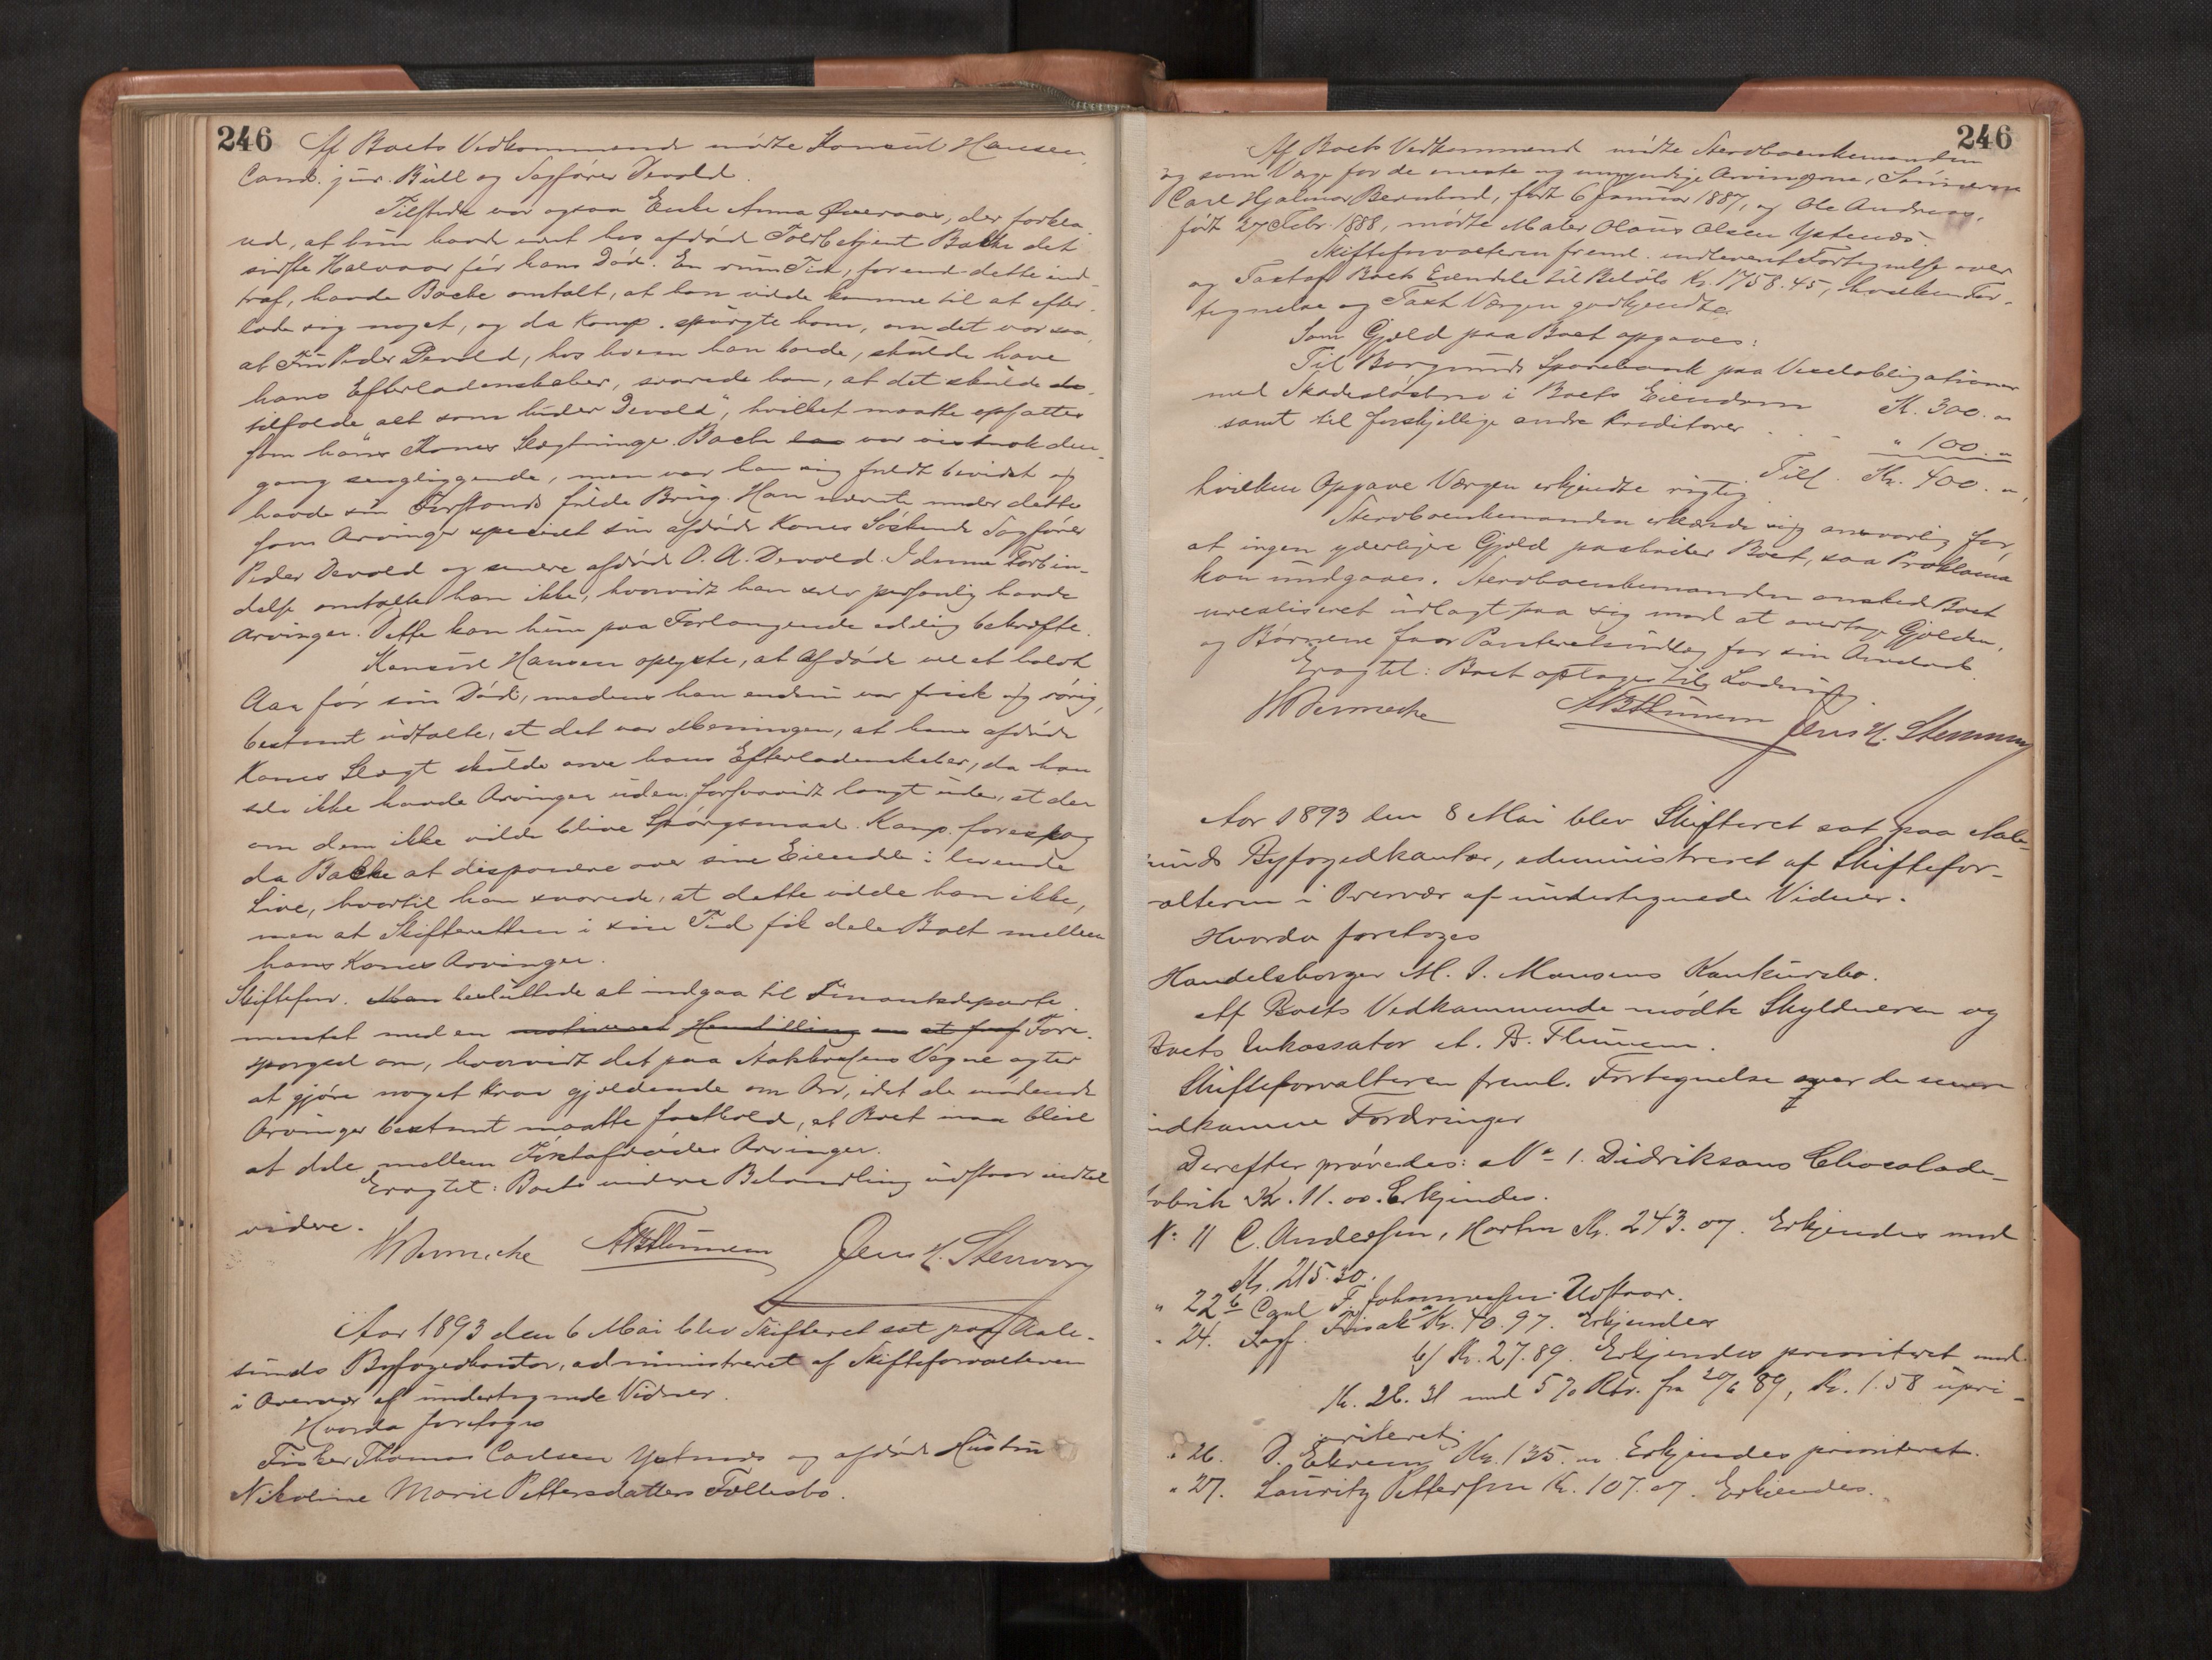 246
Af Boets Vedkommende mødte Konsul Hansen,
Cand. jur. Bull og Sagfører Devold.
Tilstede var ogsaa Enke Anna Øveraas, der forkla-
red, at hun havde været hos afdøde Toldbetjent Bache det
sidste Halvaar før hans Død. En rum Tid, førend dette ind-
traf, havde Bache omtalt, at han vilde komme til at efter-
lade sig noget, og da Komp. spurgte ham, om det var saa,
at Fru Peder Devold, hos hvem han boede, skulde have
hans Efterladenskaber, svarede han, at det skulde
tilfalde alt som heder Devold", hvilket maatte opfattes
som hans Kones Slægtninge. Bache var vistnok den-
gang sengliggende, men var han sig fuldt bevidst og
havde sin Forstands fulde Brug. Han nævnte under dette
som Arvinger specielt sin afdøde Kones Søskende Sagfører
Peder Devold og senere afdøde O. A. Devold. I denne Forbin-
delse omtalte han ikke, hvorvidt han selv personlig havde
Arvinger. Dette kan hun paa Forlangende edelig bekræfte.
Konsul Hansen oplyste, at Afdøde vel et halvt
Aar før sin Død, medens han endnu var frisk og rørig,
bestemt udtalte, at det var Meningen, at hans afdøde
Kones Slægt skulde arve hans Efterladenskaber, da han
selv ikke havde Arvinger uden forsaavidt langt ude, at der
om dem ikke vilde blive Spørgsmaal. Komp. foreslog
da Bache at disponere over sine Eiendele i levende
Live, hvortil han svarede, at dette vilde han ikke,
men at Skifteretten i sin Tid fik dele Boet mellem
hans Kones Arvinger.
Skifteforv. besluttede at indgaa til Finantsdeparte-
mentet med en Fore-
spørgsel om, hvorvidt det paa Statskassens Vegne agter
at gjøre noget Krav gjældende om Arv, idet de mødende
Arvinger bestemt maatte fastholde, at Boet maa blive
at dele mellem Førstafdødes Arvinger.
Eragtet: Boets videre Behandling udstaar indtil
videre.
ABThunem Jens H. Stenvorg
Aar 1893 den 6 Mai blev Skifteret sat paa Aale-
sunds Byfogedkontor, administreret af Skifteforvalteren
i Overvær af undertegnede Vidner.
Hvorda foretoges
Fisker Thomas Carlsen Ystenæs og afdøde Hustru
Nikoline Marie Pettersdatters Fællesbo.
246
Af Boets Vedkommende mødte Stervboenkemanden
og som Værge for de eneste og umyndige Arvingerne, Sønnerne
Carl Hjalmar Bernhard, født 6 Januar 1887, og Ole Andreas,
født 27 Febr. 1888, mødte Maler Olaus Olsen Ystenæs.
Skifteforvalteren freml. indleveret Fortegnelse over
og Taxt af Boets Eiendele til Beløb Kr. 1758.45, hvilken For-
tegnelse og Taxt Værgen godkjendte.
Som Gjæld paa Boet opgaves:
Til Borgunds Sparebank paa Vexelobligationer
med Skadesløsbrev i Boets Eiendom Kr. 300. "
samt til forskjellige andre Kreditorer " 100. "
Till. Kr. 400. "
hvilken Opgave Værgen erkjendte rigtig.
Stervboenkemanden erklærede sig ansvarlig for,
at ingen yderligere Gjæld paahviler Boet, saa Proklama
kan undgaaes. Stervboenkemanden ønsked Boet
urealiseret udlagt paa sig mod at overtage Gjælden,
og Børnene faar Panteretsudlæg for sin Arvelod.
Eragtet: Boet optages til Slutning
ABThunem Jens H. Stenvorg
Aar 1893 den 8 Mai blev Skifteret sat paa Aale-
sunds Byfogedkontor, administreret af Skiftefor-
valteren i Overvær af undertegnede Vidner.
Hvorda foretoges
Handelsborger M. I. Monsens Konkursbo.
Af Boets Vedkommende mødte Skyldneren og
Boets Inkassator A. B. Thunem.
Skifteforvalteren freml. Fortegnelse over de senere
indkomne Fordringer
Derefter prøvedes: No 1. Didriksons Chocolade-
fabrik Kr. 11.00. Erkjendes.
No 11 C. Andersen, Horten Kr. 243.07. Erkjendes med
Kr. 215.30.
" 22 b Carl F. Johannesen. Udstaar.
" 24. Sagf. Frisak a Kr. 40.97. Erkjendes
b/ Kr. 27.89. Erkjendes prioriteret med
Kr. 26.31 med 5% Rtr. fra 20/6 89, Kr. 1.58 upri-
oriteret.
" 26. O. Ekrem Kr. 135. " Erkjendes prioriteret.
" 27. Lauritz Pettersen Kr. 107.07. Erkjendes.